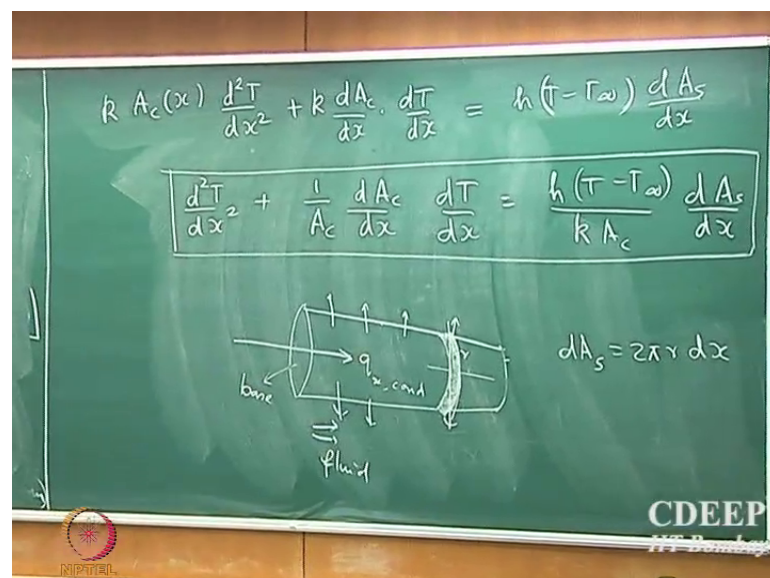 k A_c(x) d²T/dx² + k dA_c/dx · dT/dx = h(T-T∞) dA_s/dx
d²T/dx² + 1/A_c dA_c/dx dT/dx = h(T-T∞)/kA_c dA_s/dx
q_x,cond
r
base
fluid
dA_s = 2πr dx
CDEEP
IIT Bombay
NPTEL